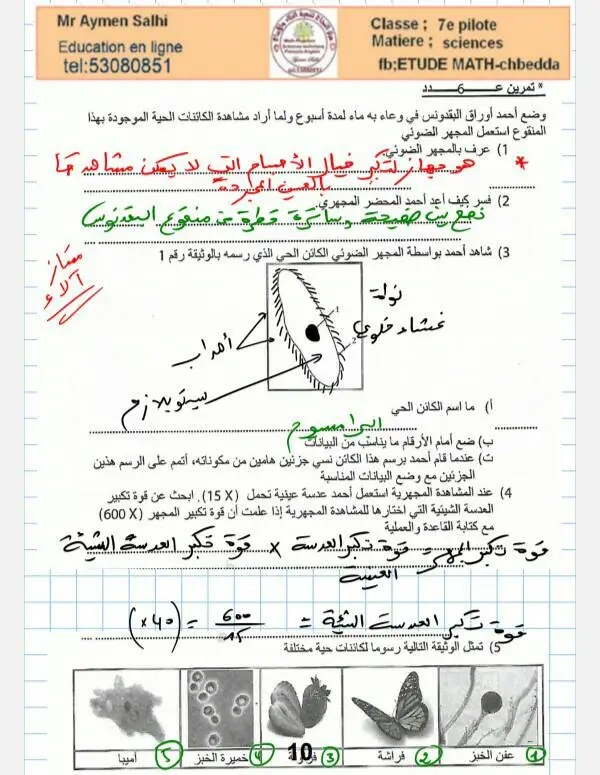 Mr Aymen Salhi
Education en ligne
tel:53080851
Classe ; 7e pilote
Matiere ; sciences
fb;ETUDE MATH-chbedda
* تمرين عـــــ6ـــــدد
وضع أحمد أوراق البقدونس في وعاء به ماء لمدة أسبوع ولما أراد مشاهدة الكائنات الحية الموجودة بهذا
المنقوع استعمل المجهر الضوئي
1) عرف بالمجهر الضوئي
* هو جهاز لتكبر خيال الأجسام التي لا يمكن مشاهدتها
بالعين المجردة
2) فسر كيف أعد أحمد المحضر المجهري
نضع بين صفيحة وساترة قطرة من منقوع البقدونس
ممتاز
آلاء
3) شاهد أحمد بواسطة المجهر الضوئي الكائن الحي الذي رسمه بالوثيقة رقم 1
1 نواة
2 غشاء خلوي
أهداب
سيتوبلازم
أ) ما اسم الكائن الحي
البرامسيوم
ب) ضع أمام الأرقام ما يناسب من البيانات
ت) عندما قام أحمد برسم هذا الكائن نسي جزئين هامين من مكوناته، أتمم على الرسم هذين
الجزئين مع وضع البيانات المناسبة
4) عند المشاهدة المجهرية استعمل أحمد عدسة عينية تحمل (15 X). ابحث عن قوة تكبير
العدسة الشيئية التي اختارها للمشاهدة المجهرية إذا علمت أن قوة تكبير المجهر (600 X)
مع كتابة القاعدة والعملية
قوة تكبر المجهر = قوة تكبر العدسة × قوة تكبر العدسة الشيئية
العينية
قوة تكبر العدسة الشيئية = 600/15 = (×40)
5) تمثل الوثيقة التالية رسوما لكائنات حية مختلفة
عفن الخبز 1
فراشة 2
3
خميرة الخبز 4
أميبا 5
10